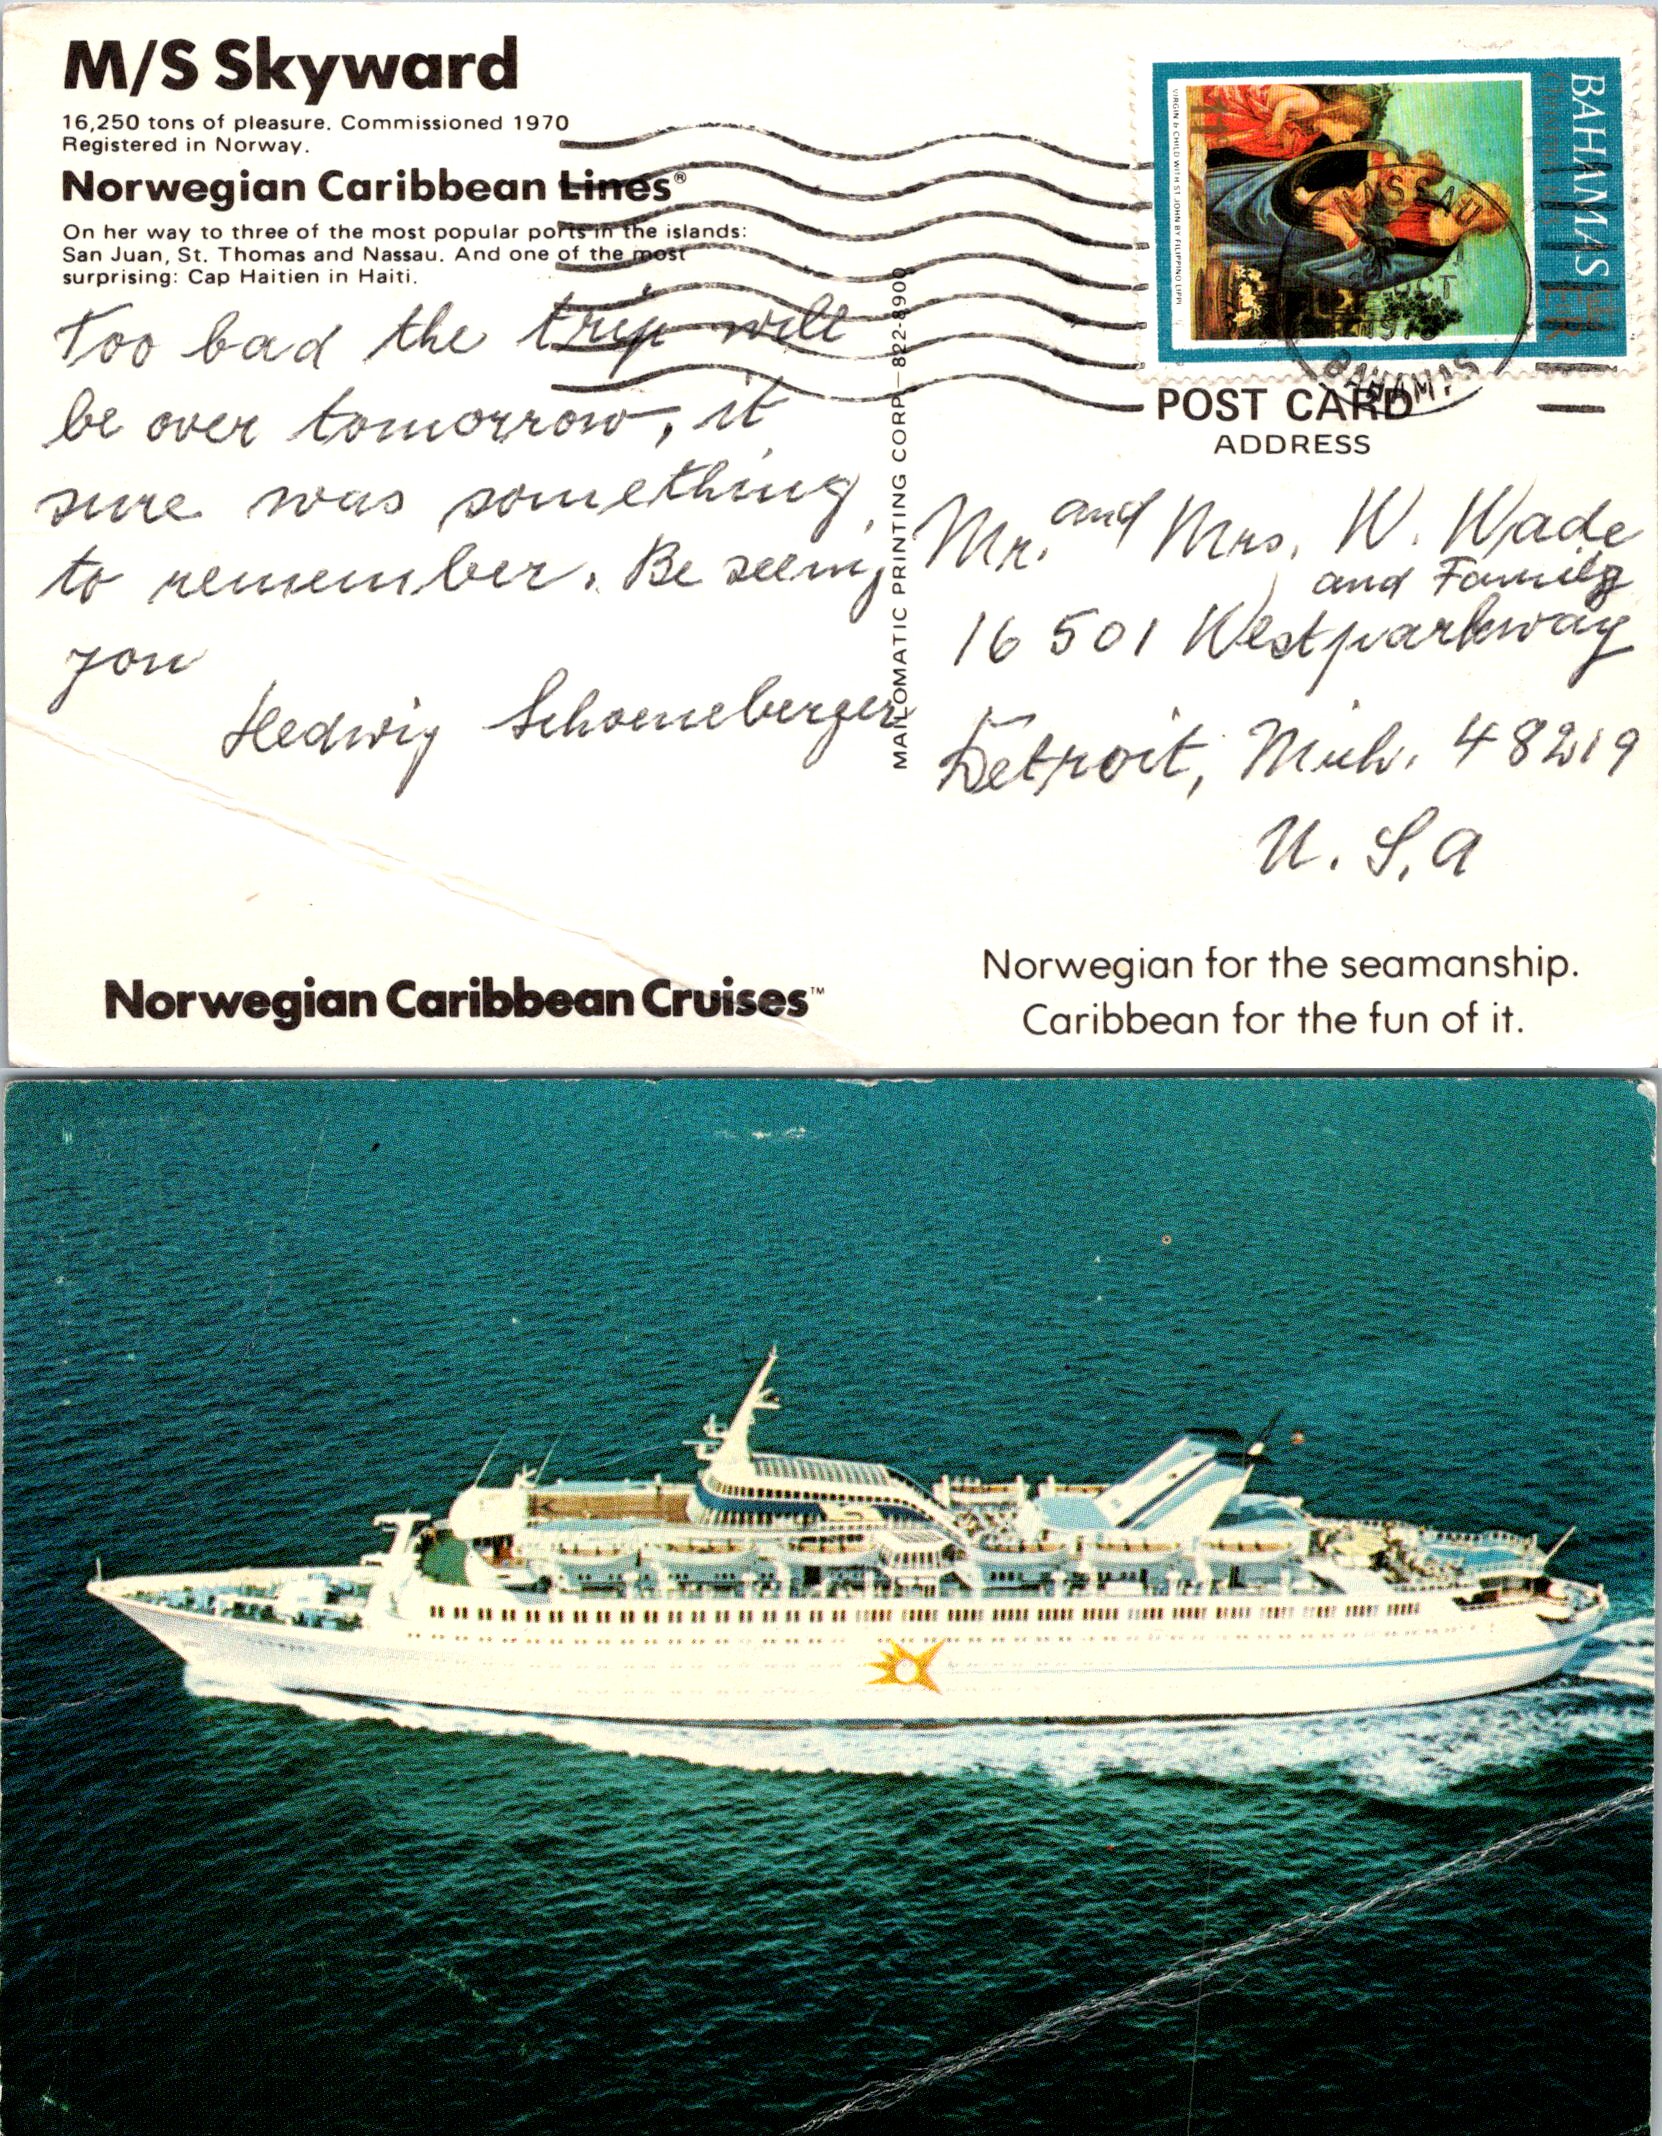 M/S Skyward
16,250 tons of pleasure. Commissioned 1970
Registered in Norway.
Norwegian Caribbean Lines®
On her way to three of the most popular ports in the islands:
San Juan, St. Thomas and Nassau. And one of the most
surprising: Cap Haitien in Haiti.
Too bad the trip will
be over tomorrow, it
sure was something
to remember. Be seeing
you
Hedwig Schoeneberger
Norwegian Caribbean Cruises™
MAILOMATIC PRINTING CORP—822-8900
BAHAMAS
VIRGIN & CHILD WITH ST. JOHN BY FILIPPINO LIPPI
11
NASSAU
OCT
BAHAMAS
POST CARD
ADDRESS
Mr. and Mrs. W. Wade
and Family
16 501 Westparkway
Detroit, Mich. 48219
U. S, A
Norwegian for the seamanship.
Caribbean for the fun of it.